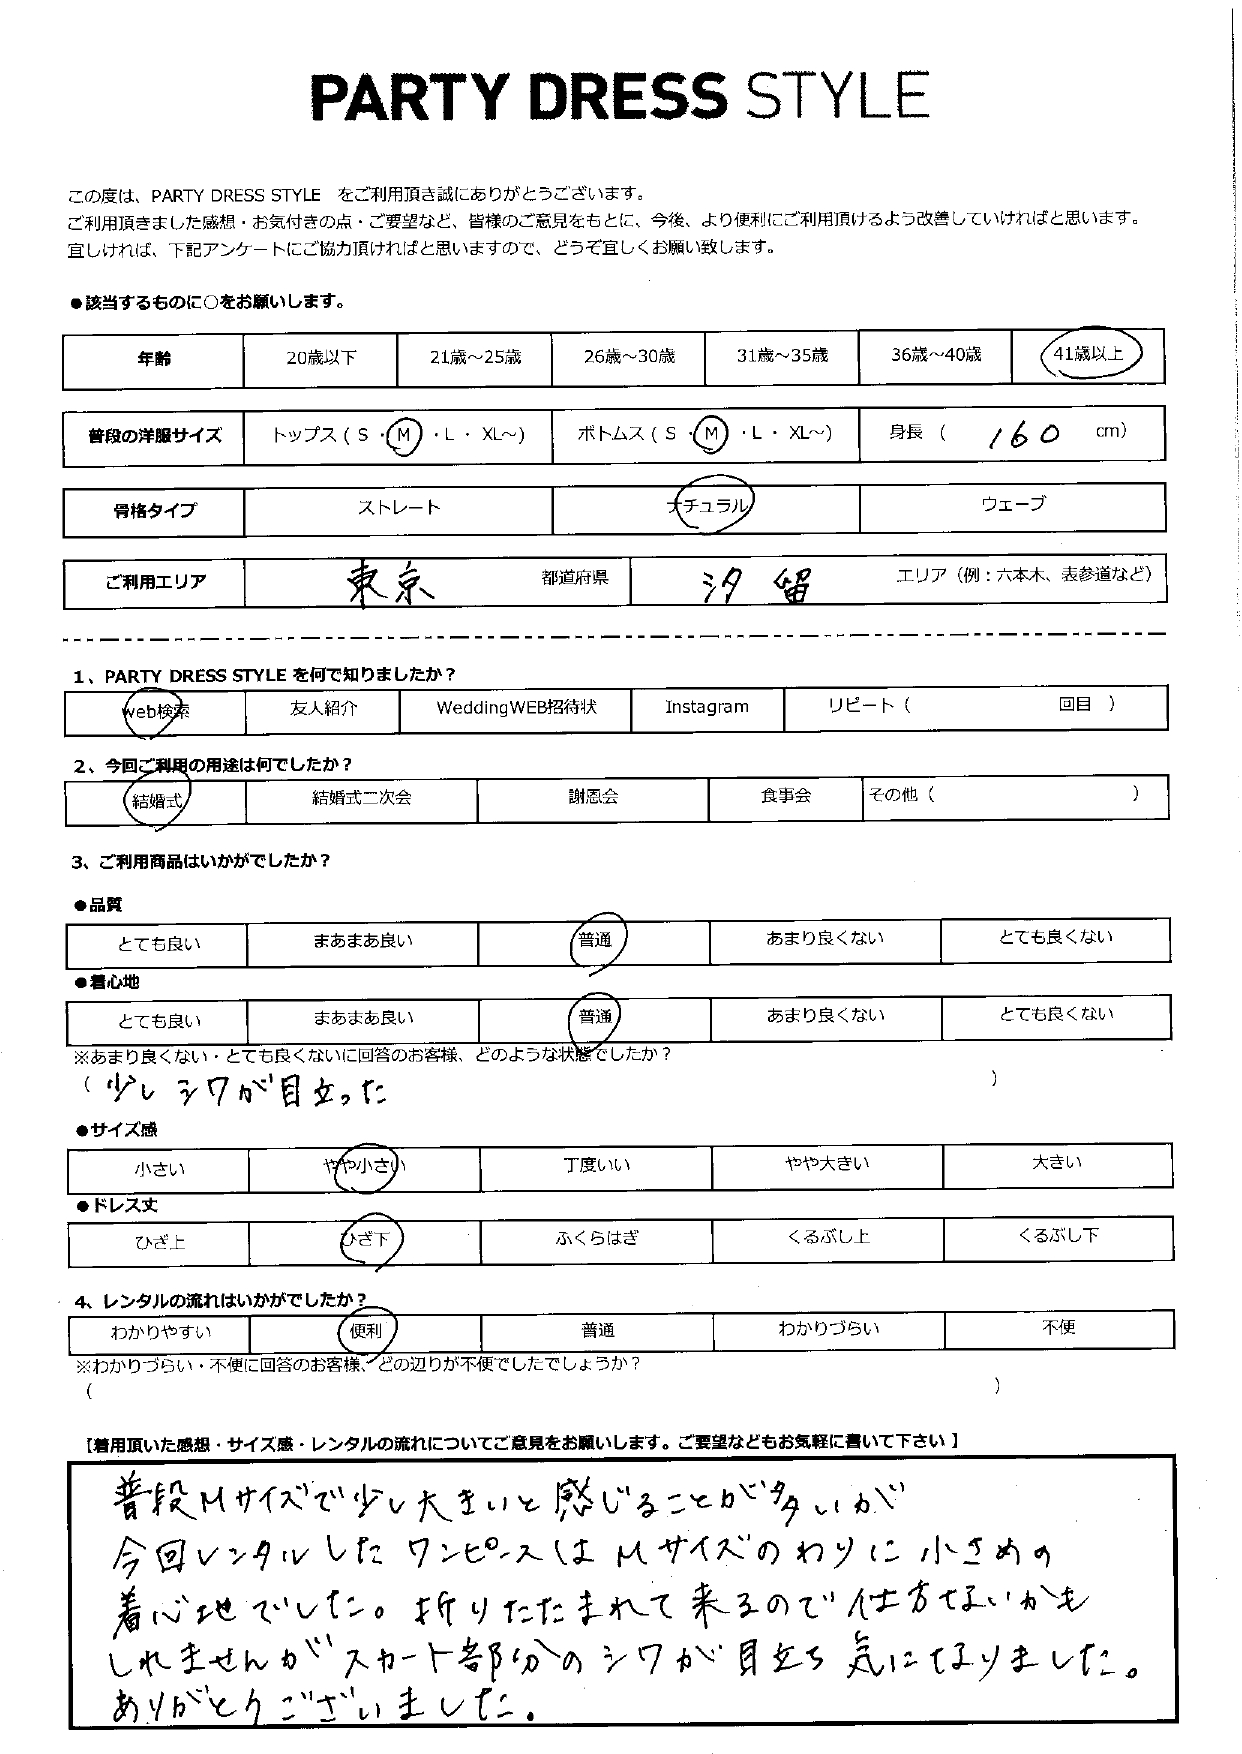 PARTY DRESS STYLE
この度は、PARTY DRESS STYLE をご利用頂き誠にありがとうございます。
ご利用頂きました感想・お気付きの点・ご要望など、皆様のご意見をもとに、今後、より便利にご利用頂けるよう改善していければと思います。
宜しければ、下記アンケートにご協力頂ければと思いますので、どうぞ宜しくお願い致します。
●該当するものに○をお願いします。
年齢 20歳以下 21歳～25歳 26歳～30歳 31歳～35歳 36歳～40歳 41歳以上
普段の洋服サイズ トップス ( S ・ M ・ L ・ XL～) ボトムス ( S ・ M ・ L ・ XL～) 身長 ( 160 cm)
骨格タイプ ストレート ナチュラル ウェーブ
ご利用エリア 東京 都道府県 汐留 エリア（例：六本木、表参道など）
1、PARTY DRESS STYLE を何で知りましたか？
web検索 友人紹介 WeddingWEB招待状 Instagram リピート ( 回目 )
2、今回ご利用の用途は何でしたか？
結婚式 結婚式二次会 謝恩会 食事会 その他 ( )
3、ご利用商品はいかがでしたか？
●品質
とても良い まあまあ良い 普通 あまり良くない とても良くない
●着心地
とても良い まあまあ良い 普通 あまり良くない とても良くない
※あまり良くない・とても良くないに回答のお客様、どのような状態でしたか？
( 少しシワが目立った )
●サイズ感
小さい やや小さい 丁度いい やや大きい 大きい
●ドレス丈
ひざ上 ひざ下 ふくらはぎ くるぶし上 くるぶし下
4、レンタルの流れはいかがでしたか？
わかりやすい 便利 普通 わかりづらい 不便
※わかりづらい・不便に回答のお客様、どの辺りが不便でしたでしょうか？
( )
【着用頂いた感想・サイズ感・レンタルの流れについてご意見をお願いします。ご要望などもお気軽に書いて下さい】
普段Mサイズで少し大きいと感じることが多いが
今回レンタルしたワンピースはMサイズのわりに小さめの
着心地でした。折りたたまれて来るので仕方ないかも
しれませんがスカート部分のシワが目立ち気になりました。
ありがとうございました。